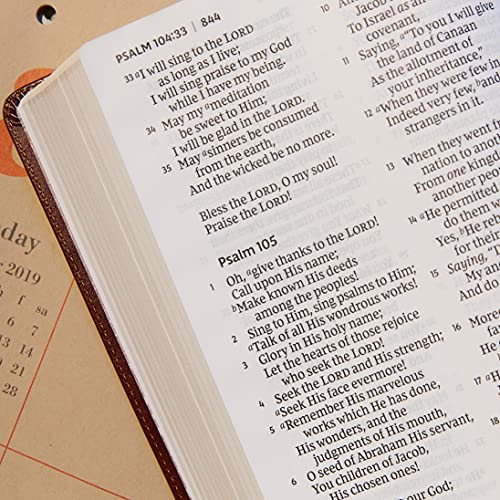 PSALM 104:33 | 844
33 ªI will sing to the LORD
as long as I live;
I will sing praise to my God
while I have my being.
34 May my ªmeditation
be sweet to Him;
I will be glad in the LORD.
35 May ªsinners be consumed
from the earth,
And the wicked be no more.
Bless the LORD, O my soul!
Praise the LORD!
Psalm 105
1 Oh, ªgive thanks to the LORD!
Call upon His name;
ᵇMake known His deeds
among the peoples!
2 Sing to Him, sing psalms to Him;
ªTalk of all His wondrous works!
3 Glory in His holy name;
Let the hearts of those rejoice
who seek the LORD!
4 Seek the LORD and His strength;
ªSeek His face evermore!
5 ªRemember His marvelous
works which He has done,
His wonders, and the
judgments of His mouth,
6 O seed of Abraham His servant,
You children of Jacob,
our God;
10 And
Jacob for
To Israel as an
covenant,
11 Saying, ª"To you I will give
the land of Canaan
As the allotment of
your inheritance,"
12 ªWhen they were few in
Indeed very few, ᵇand
strangers in it.
13 When they went from
nation to another
From one kingdom
another people
14 ªHe permitted
do them
Yes, ᵇHe
their
15 Saying,
My
And do
16 More
17 ªHe
day
2019
f sa
6 7
13 14
20 21
28